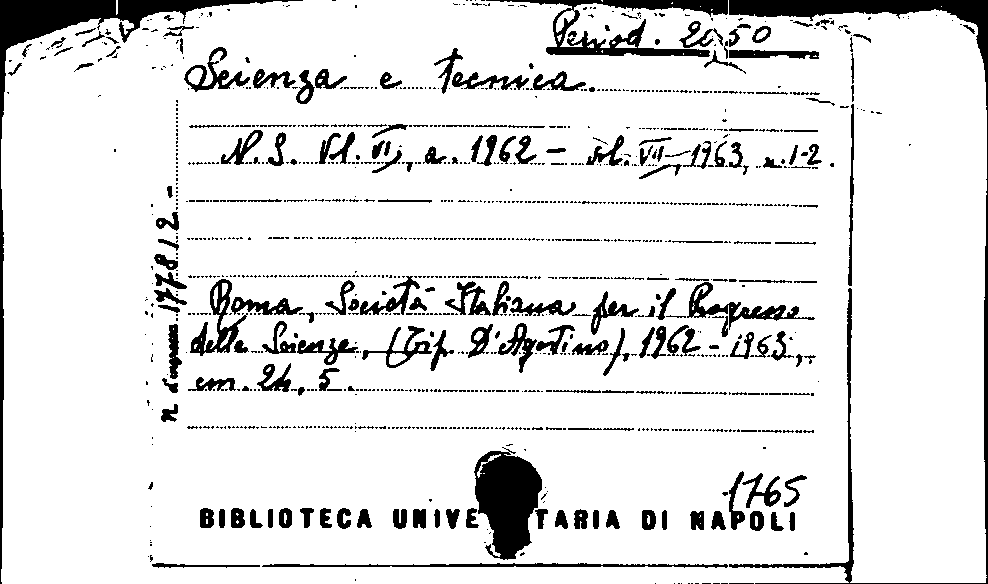 Period. 2050
Scienza e tecnica.
N. S. Vol. VI, a. 1962 - vol. VII, 1963, n. 1-2.
n d'ingresso 177812 -
Roma, Società Italiana per il Progresso
delle Scienze, (Tip. D'Agostino), 1962 - 1963,
cm. 24, 5.
1765
BIBLIOTECA UNIVE TARIA DI NAPOLI